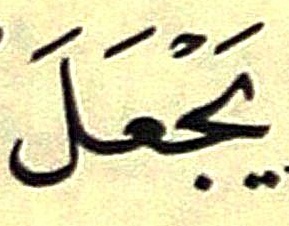 يَجْعَلَ